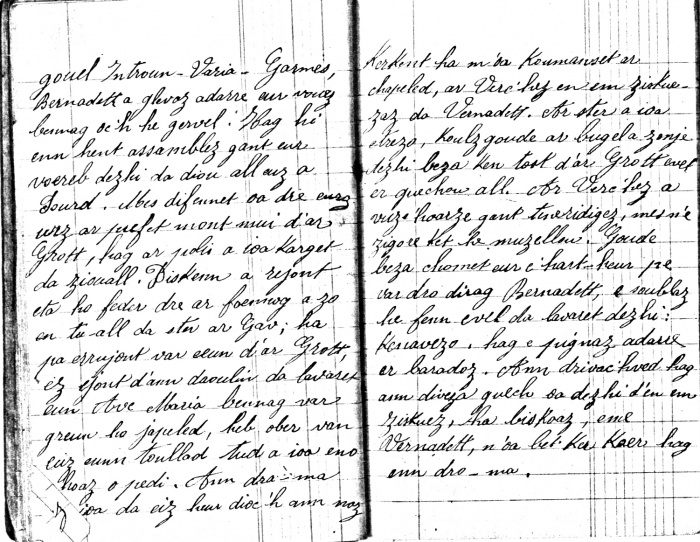 gouel Introun-Varia-Garmès,
Bernadett a glevoz adarre eur vouez
bennag oc'h he gervel. Hag hi
enn hent assamblez gant eur
voereb dezhi da diou all euz a
Lourd. Mes difennet oa dre
urz ar prefet mont mui d'ar
Grott, hag ar polis a ioa karget
da ziouall. Diskenn a rejont
eta ho feder dre ar foennog a zo
en tu-all da ster ar Gav; ha
pa errujont var eeun d'ar Grott,
ez ejont d'ann daoulin da lavaret
eun Ave Maria bennag var
greun ho japeled, heb ober van
euz eunn toullad tud a ioa eno
hoaz o pedi. Ann dra-ma
a ioa da eiz heur dioc'h ann noz
Kerkent ha m'oa koumanset ar
chapeled, ar Verc'hez en em ziskue-
zaz da Vernadett. Ar ster a ioa
etrezo, koulzgoude ar bugel a zonje
dezhi beza ken tost d'ar Grott evel
er guechou all. Ar Verc'hez a
vuze hoarze gant teneridigez, mes n'e
zigore ket he muzellou. Goude
beza chomet eur c'hart-heur pe
var dro dirag Bernadett, e soublaz
he fenn evel da lavaret dezhi:
Kenavezo, hag e pignaz adarre
er baradoz. Ann drivac'hved hag
ann diveza guech oa dezhi d'en em
ziskuez, ha biskoaz, eme
Vernadett, n'oa bet ker kaer hag
enn dro-ma.